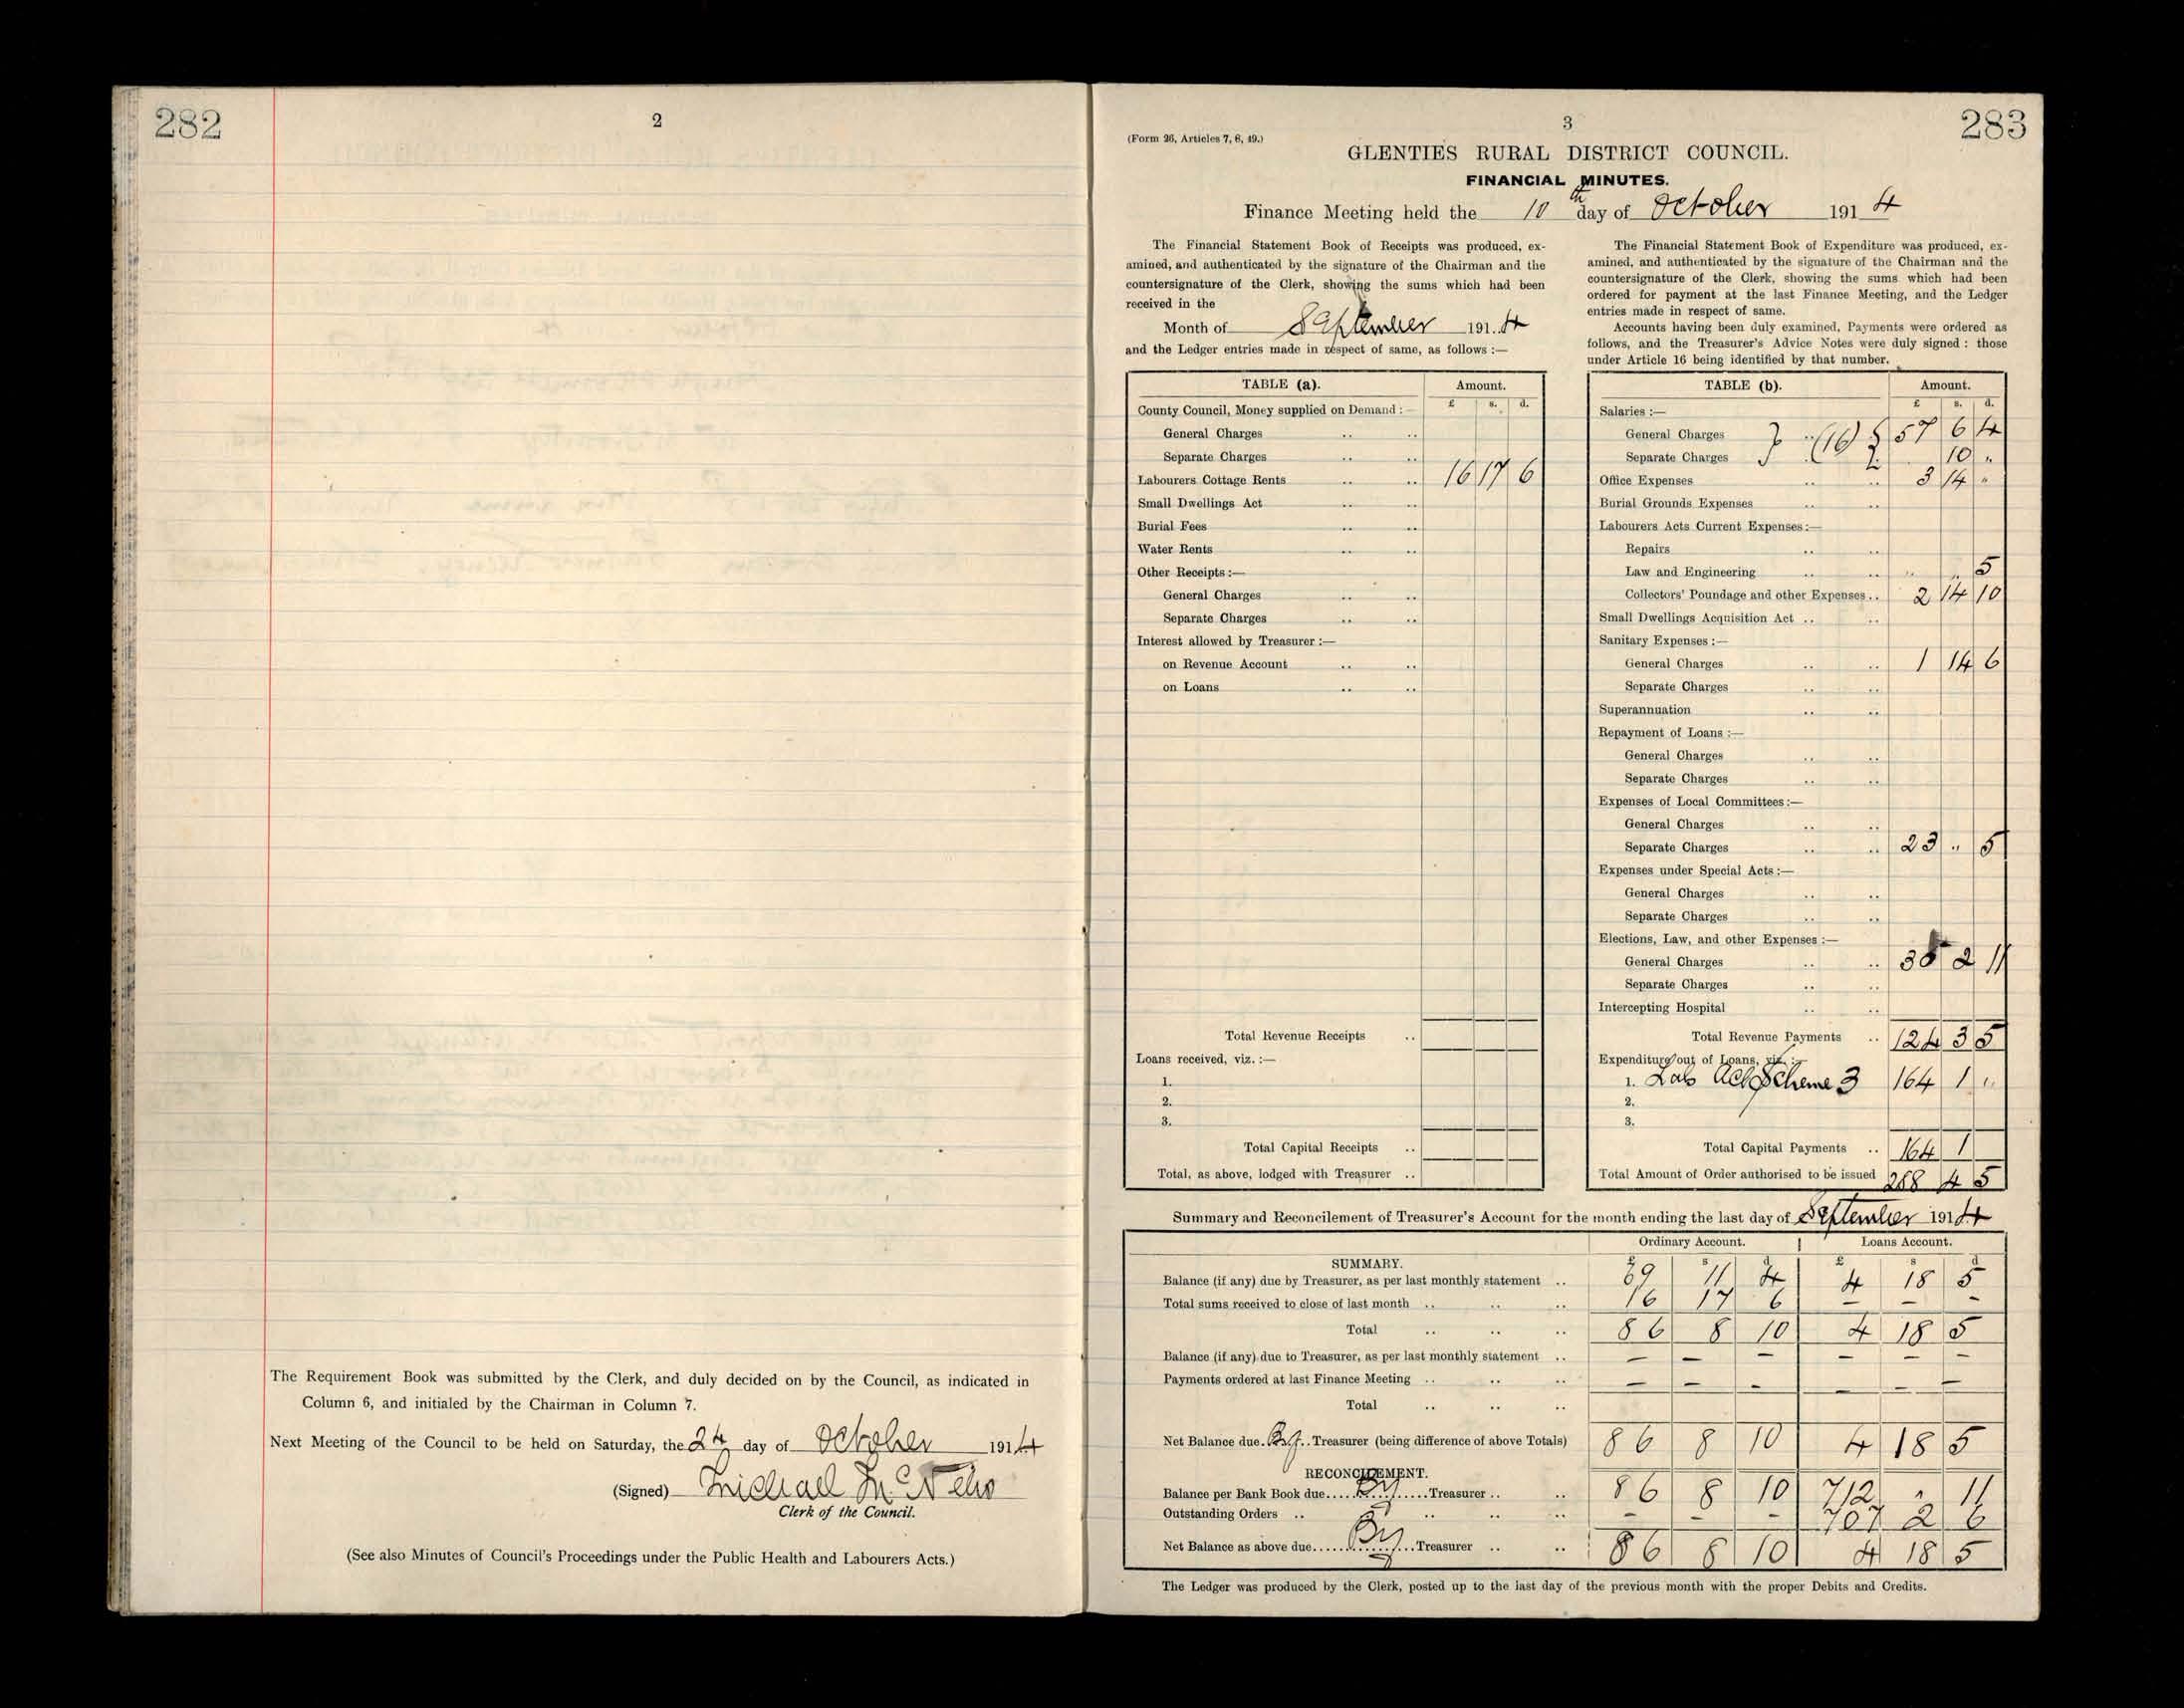 282
2
The Requirement Book was submitted by the Clerk, and duly decided on by the Council, as indicated in
Column 6, and initialed by the Chairman in Column 7.
Next Meeting of the Council to be held on Saturday, the 24 day of October 1914
(Signed) Michael McNelis
Clerk of the Council.
(See also Minutes of Council's Proceedings under the Public Health and Labourers Acts.)
3
283
(Form 26, Articles 7, 8, 49.)
GLENTIES RURAL DISTRICT COUNCIL.
FINANCIAL MINUTES.
Finance Meeting held the 10th day of October 1914
The Financial Statement Book of Receipts was produced, ex-
amined, and authenticated by the signature of the Chairman and the
countersignature of the Clerk, showing the sums which had been
received in the
Month of September 1914
and the Ledger entries made in respect of same, as follows :—
TABLE (a). Amount.
£ s. d.
County Council, Money supplied on Demand :—
General Charges .. ..
Separate Charges .. ..
Labourers Cottage Rents .. .. 16 17 6
Small Dwellings Act .. ..
Burial Fees .. ..
Water Rents .. ..
Other Receipts :—
General Charges .. ..
Separate Charges .. ..
Interest allowed by Treasurer :—
on Revenue Account .. ..
on Loans .. ..
Total Revenue Receipts ..
Loans received, viz. :—
1.
2.
3.
Total Capital Receipts ..
Total, as above, lodged with Treasurer ..
The Financial Statement Book of Expenditure was produced, ex-
amined, and authenticated by the signature of the Chairman and the
countersignature of the Clerk, showing the sums which had been
ordered for payment at the last Finance Meeting, and the Ledger
entries made in respect of same.
Accounts having been duly examined, Payments were ordered as
follows, and the Treasurer's Advice Notes were duly signed : those
under Article 16 being identified by that number.
TABLE (b). Amount.
£ s. d.
Salaries :—
General Charges } .. (16) { 57 6 4
Separate Charges 10 "
Office Expenses .. .. 3 14 "
Burial Grounds Expenses .. ..
Labourers Acts Current Expenses :—
Repairs .. ..
Law and Engineering .. .. " " 5
Collectors' Poundage and other Expenses .. 2 14 10
Small Dwellings Acquisition Act .. ..
Sanitary Expenses :—
General Charges .. .. 1 14 6
Separate Charges .. ..
Superannuation .. ..
Repayment of Loans :—
General Charges .. ..
Separate Charges .. ..
Expenses of Local Committees :—
General Charges .. ..
Separate Charges .. .. 23 " 5
Expenses under Special Acts :—
General Charges .. ..
Separate Charges .. ..
Elections, Law, and other Expenses :—
General Charges .. .. 35 2 11
Separate Charges .. ..
Intercepting Hospital .. ..
Total Revenue Payments .. 124 3 5
Expenditure out of Loans, viz. :—
1. Lab Act Scheme 3 164 1 "
2.
3.
Total Capital Payments .. 164 1
Total Amount of Order authorised to be issued 288 4 5
Summary and Reconcilement of Treasurer's Account for the month ending the last day of September 1914
Ordinary Account. Loans Account.
SUMMARY. £ s d £ s d
Balance (if any) due by Treasurer, as per last monthly statement .. 69 11 4 4 18 5
Total sums received to close of last month .. .. .. 16 17 6 — — —
Total .. .. .. 86 8 10 4 18 5
Balance (if any) due to Treasurer, as per last monthly statement .. — — — — — —
Payments ordered at last Finance Meeting .. .. .. — — — — — —
Total .. .. ..
Net Balance due By Treasurer (being difference of above Totals) 86 8 10 4 18 5
RECONCILEMENT.
Balance per Bank Book due By Treasurer .. .. 86 8 10 712 " 11
Outstanding Orders .. .. .. .. — — — 707 2 6
Net Balance as above due By Treasurer .. .. 86 8 10 4 18 5
The Ledger was produced by the Clerk, posted up to the last day of the previous month with the proper Debits and Credits.